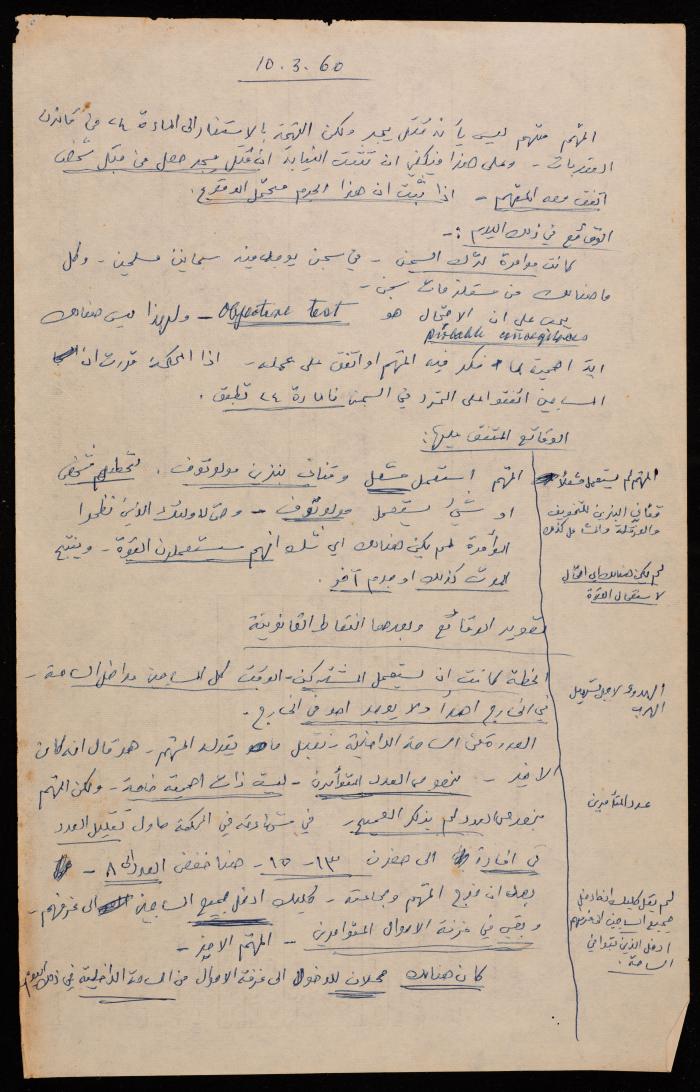 10.3.60
المتهم متهم ليس بأنه قتل بيجر ولكن التهمة بالاستناد الى المادة ٢٤ من قانون
العقوبات - وعلى هذا فيكفي ان تثبت النيابة ان قتل بيجر حصل من قبل شخص
اتفق معه المتهم - اذا ثبت ان هذا الجرم محتمل الوقوع.
الوقائع في ذلك اليوم :-
كانت مؤامرة لترك السجن - في سجن يوجد فيه سجانين مسلحين - وكل
ما هنالك من مستلزمات سجن -
يجب على ان الاحتمال هو Objective test - ولهذا ليس هنالك
probable consequences
اية اهمية لما فكر فيه المتهم او اتفق على عمله - اذا المحكمة قررت ان
المساجين اتفقوا على التمرد في السجن فالمادة ٢٤ تطبق.
الوقائع المتفق عليها:
المتهم استعمل مشعل وقناني بنزين مولوتوف. لتحطيم شخص
او شيء يستعمل مولوتوف - وحتى لاولئك الذين نظموا
المؤامرة لم يكن هنالك اي شك انهم سيستعملون القوة - وينتج
الموت كذلك او جرم آخر.
تقرير الوقائع وبعدها النقاط القانونية
الخطة كانت ان يستعمل المشتركين - الوقت كل المساجين داخل الساحة -
في الخارج اهدأ ولا يوجد احد في الخارج.
العودة من الساحة الداخلية - نقبل ما يقوله المتهم - هو قال انه كان
الاخير - بخصوص العدد المتوآمرين - ليست ذات اهمية خاصة - ولكن المتهم
بخصوص العدد لم يذكر الصحيح، في شهادته في المحكمة حاول تقليل العدد
في افادة الى حضرن ١٣ - ١٥ - هنا خفض العدد الى ٨ -
بعد ان خرج المتهم وجماعته - كليك ادخل جميع المساجين الى غرفهم -
وبقي في غرفة الاموال المتوآمرين - المتهم الاخير -
كان هنالك مجالان للدخول الى غرفة الاموال من الساحة الداخلية في ذلك اليوم
المتهم لم يستعمل مشعلاً
قناني البنزين للتخويف
والعرقلة والمشاعل كذلك
لم يكن هنالك اي احتمال
لاستعمال القوة
الهدوء لاجل تسهيل
الهرب
عدد المتآمرين
لم يقل كليك انه ادخل
جميع المساجين الى غرفهم
ادخل الذين كانوا في
الساحة.